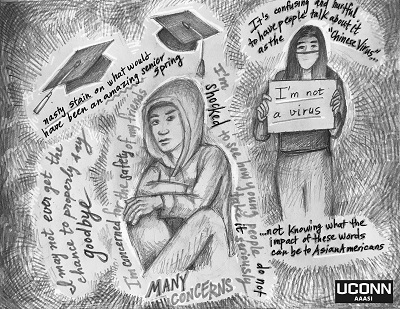 nasty stain on what would
have been an amazing senior
spring
I may not ever get the
chance to properly say
goodbye
I'm concerned for the safety of my friends
I'm
shocked
to see how young people do not
take it seriously
MANY
CONCERNS
It's confusing and hurtful
to have people talk about it
as the
"Chinese Virus"...
I'm not
a virus
...not knowing what the
impact of these words
can be to Asian Americans
UCONN
AAASI